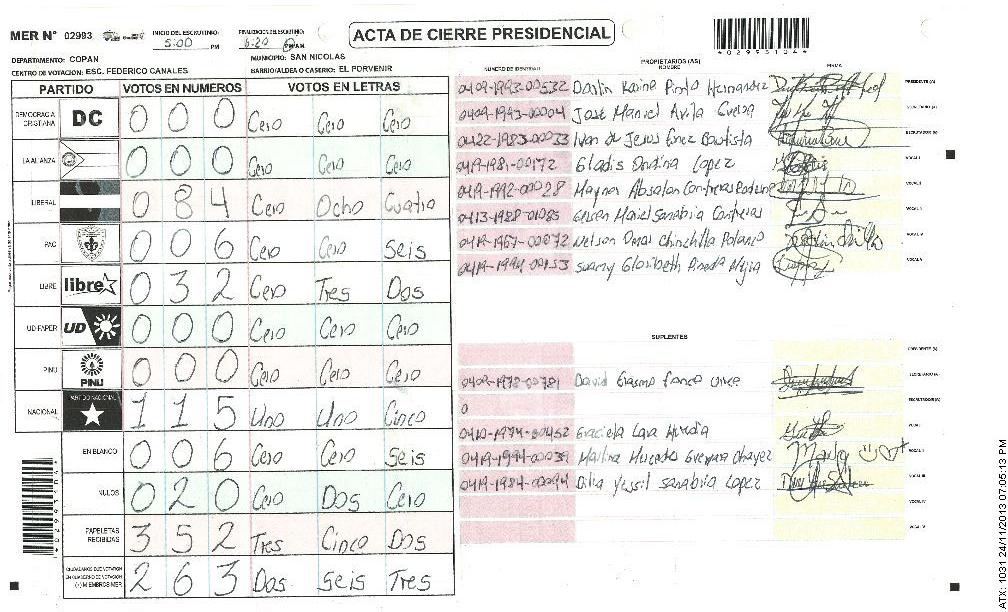 MER N° 02993
INICIO DEL ESCRUTINIO: 5:00 PM
FINALIZACION DEL ESCRUTINIO: 6:20 PM
ACTA DE CIERRE PRESIDENCIAL
4029931044
DEPARTAMENTO: COPAN
MUNICIPIO: SAN NICOLAS
CENTRO DE VOTACION: ESC. FEDERICO CANALES
BARRIO/ALDEA O CASERIO: EL PORVENIR
PARTIDO VOTOS EN NUMEROS VOTOS EN LETRAS
DEMOCRACIA CRISTIANA DC 0 0 0 Cero Cero Cero
LA ALIANZA 0 0 0 Cero Cero Cero
LIBERAL 0 8 4 Cero Ocho Cuatro
PAC 0 0 6 Cero Cero Seis
LIBRE libre 0 3 2 Cero Tres Dos
UD FAPER UD 0 0 0 Cero Cero Cero
PINU PINU 0 0 0 Cero Cero Cero
NACIONAL PARTIDO NACIONAL 1 1 5 Uno Uno Cinco
EN BLANCO 0 0 6 Cero Cero Seis
NULOS 0 2 0 Cero Dos Cero
PAPELETAS RECIBIDAS 3 5 2 Tres Cinco Dos
CIUDADANOS QUE VOTARON EN CUADERNO DE VOTACION (+) MIEMBROS MER 2 6 3 Dos Seis Tres
PROPIETARIOS (AS)
NUMERO DE IDENTIDAD NOMBRE FIRMA
0409-1993-00532 Karina Pinto Hernandez PRESIDENTE (A)
0409-1993-00004 José Manuel Avila Guerra SECRETARIO (A)
0422-1983-00033 Ivan de Jesus Bautista ESCRUTADOR (A)
0419-1981-00172 Gladis Ondina Lopez VOCAL I
0419-1992-00028 Maynor Absalon Contreras VOCAL II
0413-1988-01085 Gerson Mariel Sanabria Contreras
0419-1967-00072 Nelson Omar Chinchilla Polanco
0419-1994-00153 Suamy Elosibeth Pineda
SUPLENTES
PRESIDENTE (A)
David Erasmo SECRETARIO (A)
0 ESCRUTADOR (A)
0419-1974-00452 Graciela Lara Heredia VOCAL I
0419-1994-00039 Marlina Mercedes Guevara Chavez VOCAL II
0419-1984-00094 Dilia Yessil Sanabria Lopez VOCAL III
VOCAL IV
VOCAL V
ATX: 1031 24/11/2013 07:05:13 PM